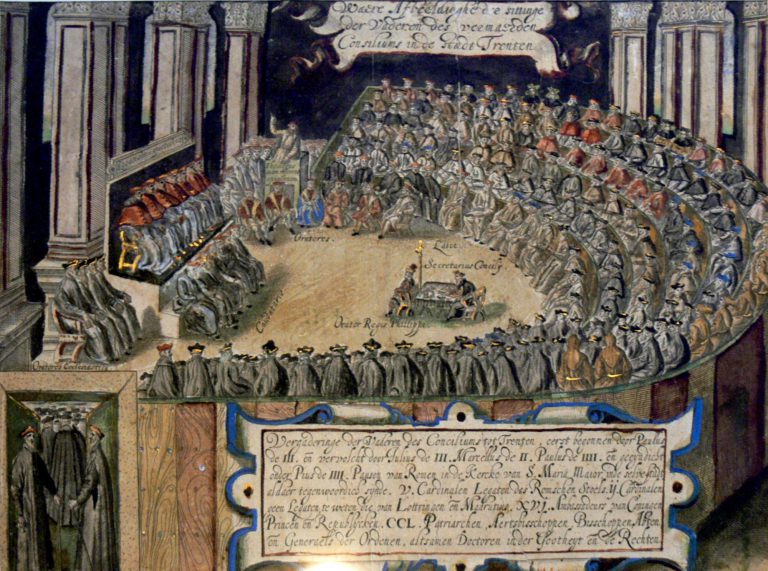 Waere Afbeeldinghe de sittinge
der Vaderen des vermaerden
Consiliums in de Stadt Trenten
Oratores.
Laici
Secretarius Concilij
Consiliarij
Orator Regis Philippi
Oratores Ecclesiastici
Vergaderinge der Vaderen des Conciliums tot Trenten, eerst begonnen door Paulus
de III. en vervolcht door Julius de III. Marcellus de II. Paulus de IIII. en geeyndicht
onder Pius de IIII. Pausen van Romen in de Kercke van S. Maria Maior, inde selve stadt
aldaer tegenwoordich sijnde. V. Cardinalen Legaten des Romschen Stoels. II. Cardinalen
geen Legaten te weten die van Lottringen en Madrutius, XVI. Ambassadeurs van Coningen
Princen en Republycken. CCL. Patriarchen, Aertsbisschoppen, Bisschoppen, Abten
en Generaels der Ordenen, altsamen Doctoren inder Godtheyt en de Rechten.